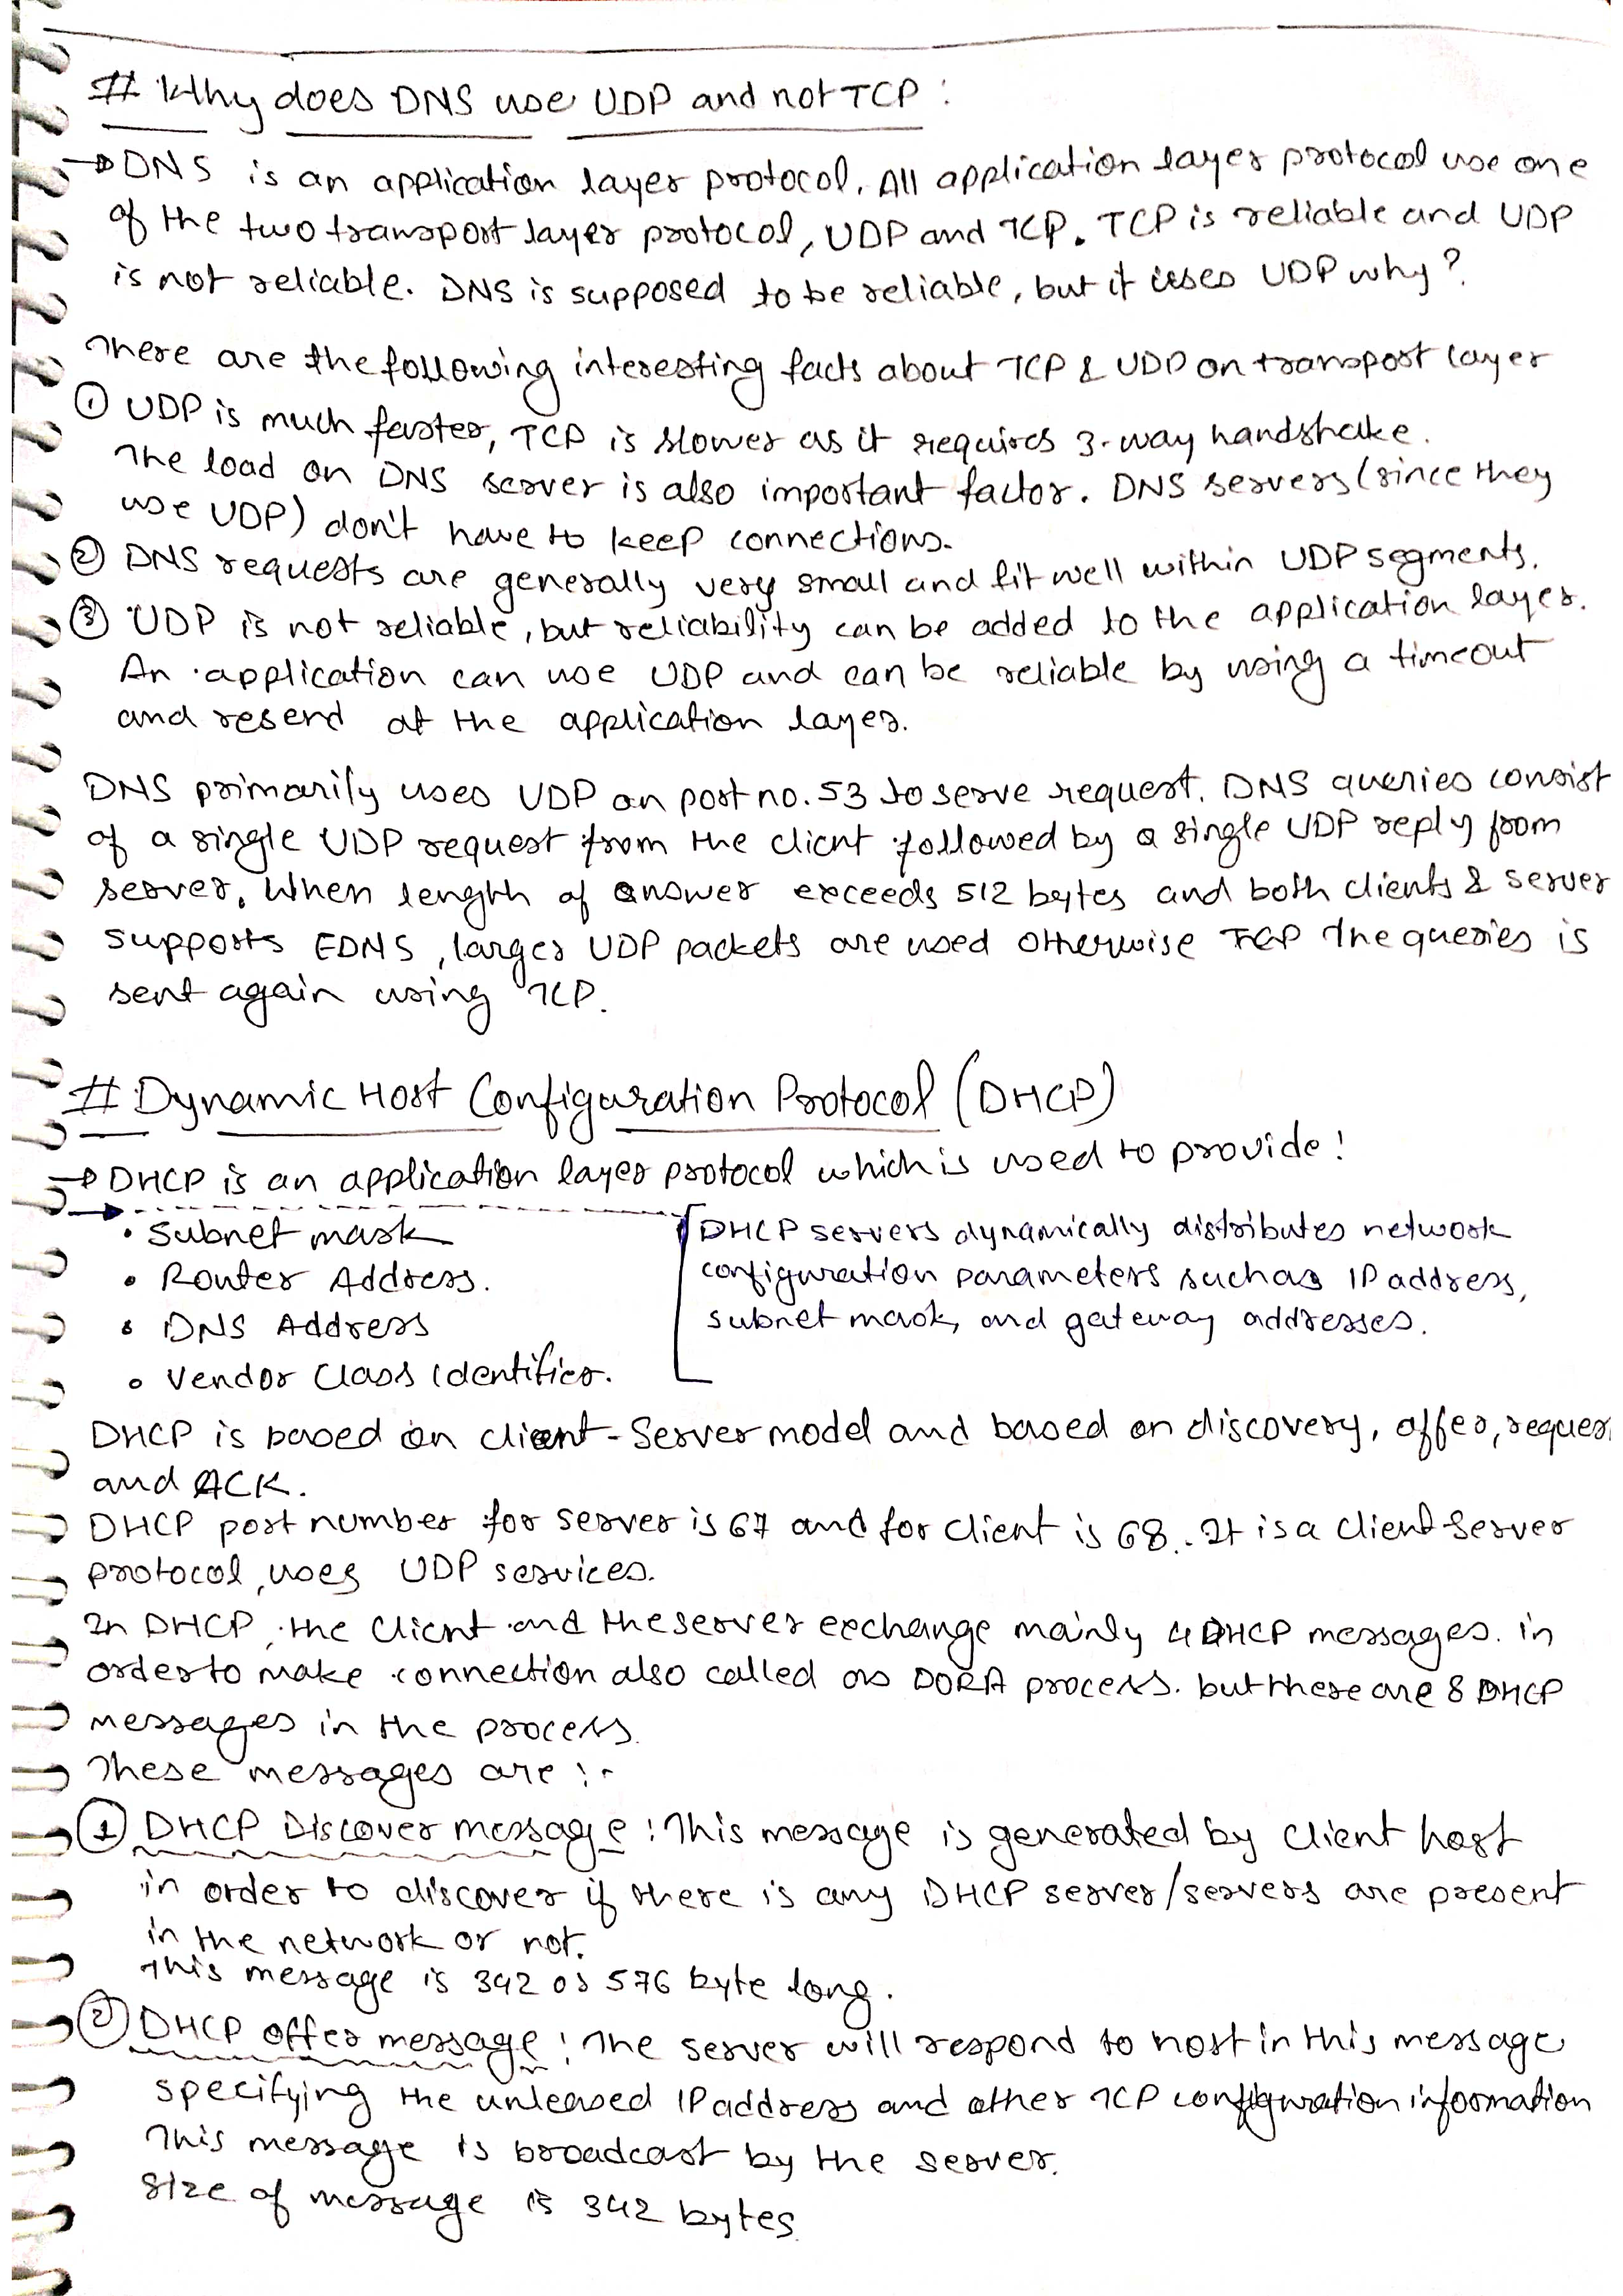 # Why does DNS use UDP and not TCP :
→ DNS is an application layer protocol. All application layer protocol use one
of the two transport layer protocol, UDP and TCP. TCP is reliable and UDP
is not reliable. DNS is supposed to be reliable, but it uses UDP why?
There are the following interesting facts about TCP & UDP on transport layer
① UDP is much faster, TCP is slower as it requires 3-way handshake.
The load on DNS server is also important factor. DNS servers (since they
use UDP) don't have to keep connections.
② DNS requests are generally very small and fit well within UDP segments.
③ UDP is not reliable, but reliability can be added to the application layer.
An application can use UDP and can be reliable by using a timeout
and resend at the application layer.
DNS primarily uses UDP on port no. 53 to serve request. DNS queries consist
of a single UDP request from the client followed by a single UDP reply from
server. When length of answer exceeds 512 bytes and both clients & server
supports EDNS, larger UDP packets are used otherwise TCP the queries is
sent again using TCP.
# Dynamic Host Configuration Protocol (DHCP)
→ DHCP is an application layer protocol which is used to provide!
• Subnet mask
• Router Address.
• DNS Address
• Vendor Class Identifier.
DHCP servers dynamically distributes network
configuration parameters such as IP address,
subnet mask, and gateway addresses.
DHCP is based on client-Server model and based on discovery, offer, reques
and ACK.
DHCP port number for server is 67 and for client is 68. It is a client server
protocol, uses UDP services.
In DHCP, the client and the server exchange mainly 4 DHCP messages. in
order to make connection also called as DORA process. but there are 8 DHCP
messages in the process.
These messages are :-
① DHCP Discover message : This message is generated by client host
in order to discover if there is any DHCP server/servers are present
in the network or not.
This message is 342 or 576 byte long.
② DHCP offer message : The server will respond to host in this message
specifying the unleased IP address and other TCP configuration information
This message is broadcast by the server.
Size of message is 342 bytes.